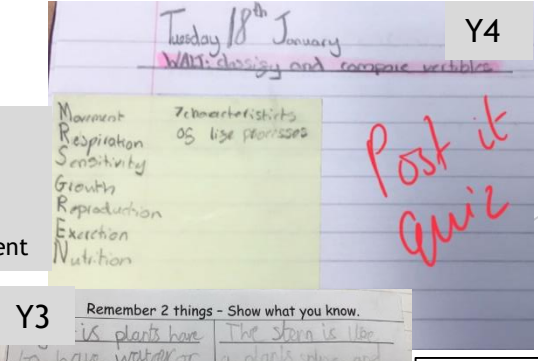 Tuesday 18th January
Y4
WALT: classify and compare vertibles
Movement
Respiration
Sensitivity
Growth
Reproduction
Exerction
Nutrition
7 characteristicts
OS lise proccsses
Post it
quiz
ent
Y3
Remember 2 things - Show what you know.
is plants have
The stem is like